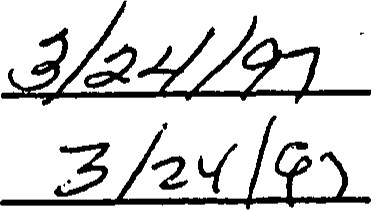 3/24/97
3/24/97